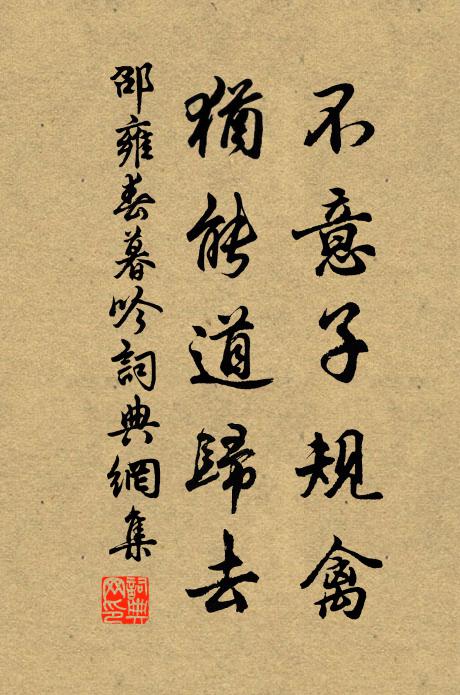 不意子規禽
猶能道歸去
邵雍春暮吟詞典網集
詞典網印